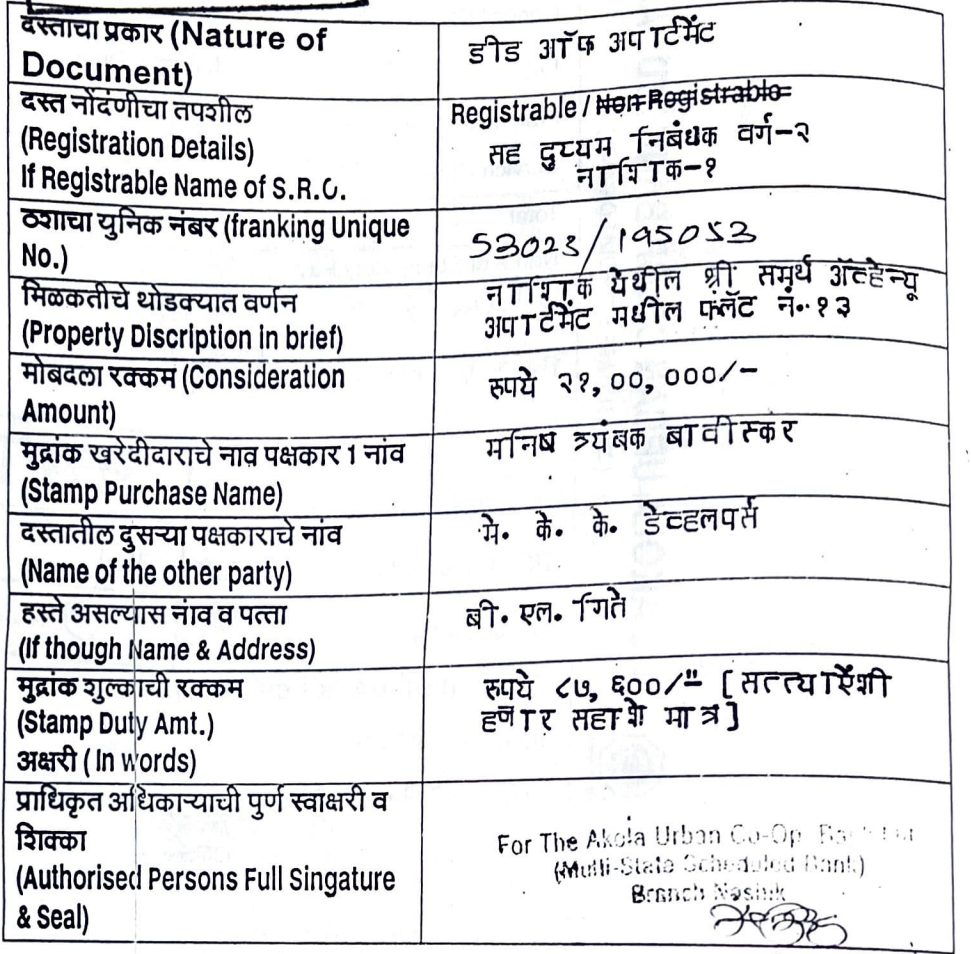 दस्ताचा प्रकार (Nature of
Document)
डीड ऑफ अपार्टमेंट
दस्त नोंदणीचा तपशील
(Registration Details)
If Registrable Name of S.R.O.
Registrable / Non Registrable
सह दुय्यम निबंधक वर्ग-२
नाशिक-१
ठशाचा युनिक नंबर (franking Unique
No.)
53023/195053
मिळकतीचे थोडक्यात वर्णन
(Property Discription in brief)
नाशिक येथील श्री समर्थ ॲव्हेन्यू
अपार्टमेंट मधील फ्लॅट नं. १३
मोबदला रक्कम (Consideration
Amount)
रुपये २१,००,०००/-
मुद्रांक खरेदीदाराचे नाव पक्षकार 1 नांव
(Stamp Purchase Name)
मनिष त्र्यंबक बावीस्कर
दस्तातील दुसऱ्या पक्षकाराचे नांव
(Name of the other party)
मे. के. के. डेव्हलपर्स
हस्ते असल्यास नांव व पत्ता
(If though Name & Address)
बी. एल. गिते
मुद्रांक शुल्काची रक्कम
(Stamp Duty Amt.)
अक्षरी ( In words)
रुपये ८७,६००/" [सत्त्याऐंशी
हजार सहाशे मात्र]
प्राधिकृत अधिकाऱ्याची पुर्ण स्वाक्षरी व
शिक्का
(Authorised Persons Full Singature
& Seal)
For The Akola Urban Co-Op. Bank Ltd
(Multi-State Scheduled Bank)
Branch Nashik